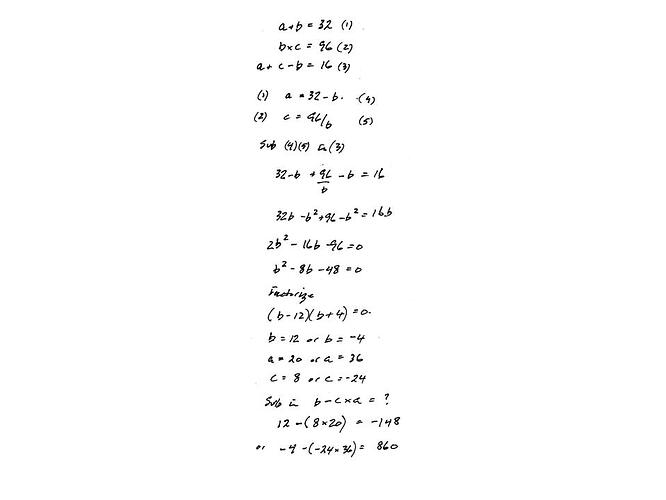 a+b = 32 (1)
b×c = 96 (2)
a + c - b = 16 (3)
(1) a = 32 - b. -(4)
(2) c = 96/b (5)
Sub (4)(5) in (3)
32-b + 96/b - b = 16
32b - b² + 96 - b² = 16b
2b² - 16b - 96 = 0
b² - 8b - 48 = 0
Factorize
(b-12)(b+4) = 0.
b = 12 or b = -4
a = 20 or a = 36
c = 8 or c = -24
Sub in b - c × a = ?
12 - (8×20) = -148
or -4 - (-24×36) = 860